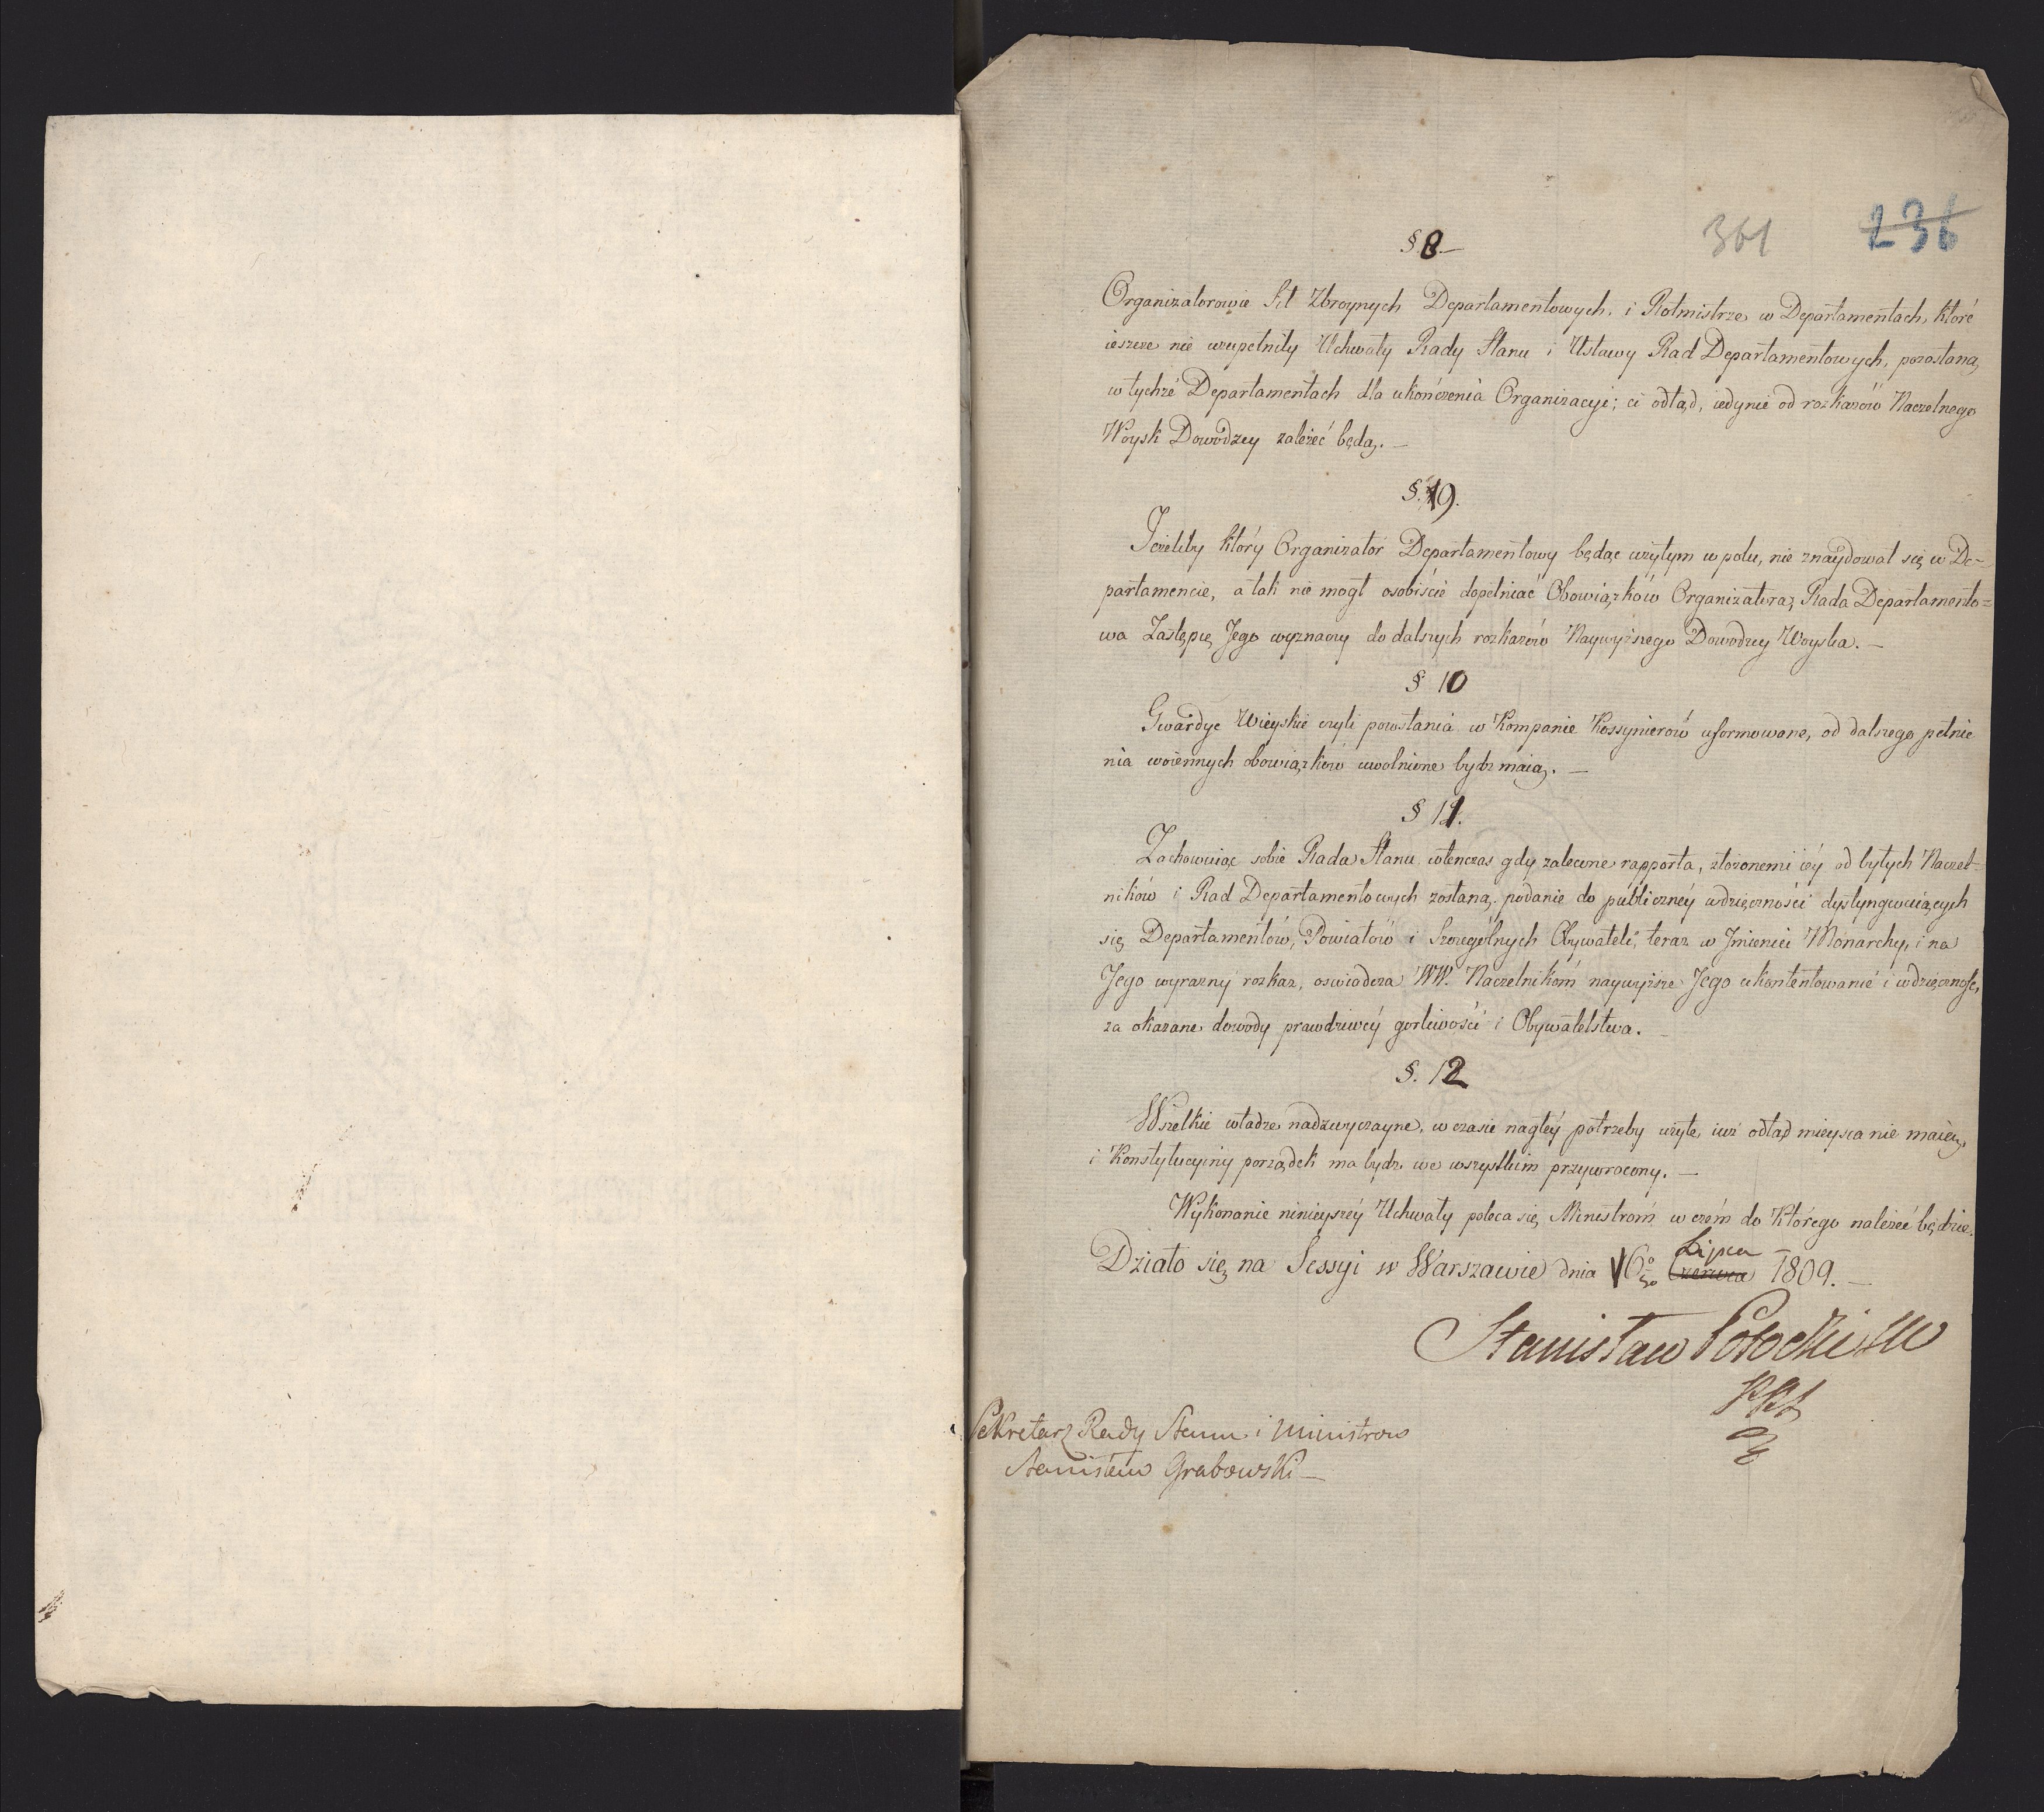 361 236
§ 8.
Organizatorowie Sił Zbroynych Departamentowych, i Rotmistrze w Departamentach, które
ieszcze nie uzupełniły Uchwały Rady Stanu i Ustawy Rad Departamentowych, pozostaną
w tychże Departamentach dla ukończenia Organizacyi; ci odtąd, iedynie od rozkazów Naczelnego
Woysk Dowódzcy zależeć będą. —
§. 9.
Jeżeliby który Organizator Departamentowy będąc użytym w polu, nie znaydował się w De-
partamencie, a tak nie mogł osobiście dopełniać Obowiązków Organizatora, Rada Departamento=
wa Zastępcę Jego wyznaczy do dalszych rozkazów Naywyższego Dowodzcy Woyska. —
§ 10
Gwardye Wieyskie czyli powstania w Kompanie Kossynierów uformowane, od dalszego pełnie
nia woiennych obowiązków uwolnione bydz maią. —
§ 11.
Zachowuiąc sobie Rada Stanu wtenczas gdy zalecone rapporta, złożonemi iéy od byłych Naczel-
ników i Rad Departamentowych zostaną, podanie do publicznéy wdzięczności dystyngwuiących
się Departamentów, Powiatów i Szczególnych Obywateli, teraz w Jmieniu Monarchy, i na
Jego wyrazny rozkaz, oswiadcza WW. Naczelnikóm naywyższe Jego ukontentowanie i wdzięczność,
za okazane dowody prawdziwéy gorliwości i Obywatelstwa. —
§. 12
Wszelkie władze nadzwyczayne, w czasie nagłéy potrzeby użyte, iuż odtąd mieysca nie maią,
i Konstytucyiny porządek ma bydz we wszystkim przywrocony. —
Wykonanie ninieyszéy Uchwały poleca się Ministróm w czém do Którego należeć będzie.
Lipca
Działo się na Sessyi w Warszawie dnia 16go Czerwca 1809. —
Stanisław Potocki
Sekretarz Rady Stanu i Ministrow
Stanisław Grabowski —